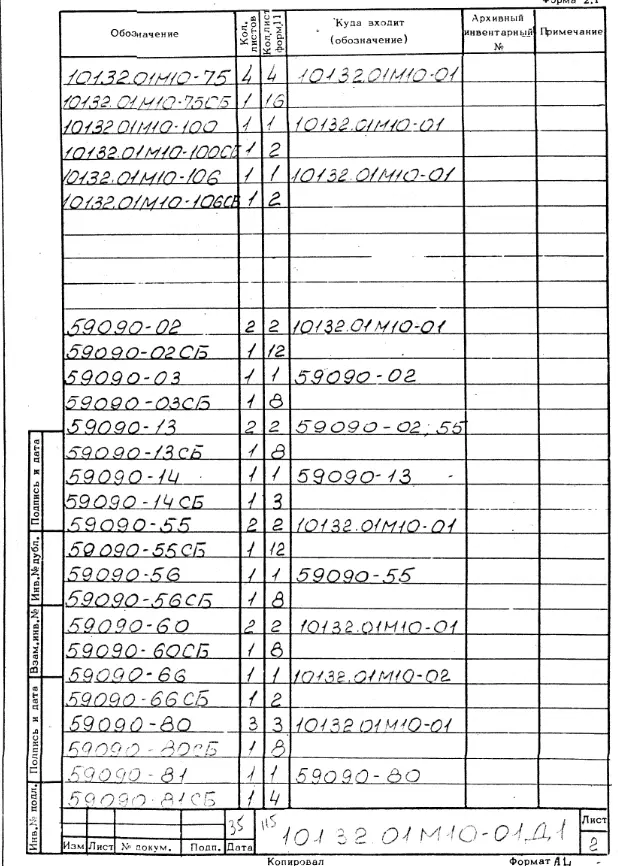 Форма 2.1
Обозначение Кол. листов Кол.лист форм.11 Куда входит (обозначение) Архивный инвентарный № Примечание
10132.01М10-75 4 4 10132.01М10-01
10132.01М10-75СБ 1 16
10132.01М10-100 1 1 10132.01М10-01
10132.01М10-100СБ 1 2
10132.01М10-106 1 1 10132.01М10-01
10132.01М10-106СБ 1 2
59090-02 2 2 10132.01М10-01
59090-02СБ 1 12
59090-03 1 1 59090-02
59090-03СБ 1 8
59090-13 2 2 59090-02; 55
59090-13СБ 1 8
59090-14 1 1 59090-13
59090-14СБ 1 3
59090-55 2 2 10132.01М10-01
59090-55СБ 1 12
59090-56 1 1 59090-55
59090-56СБ 1 8
59090-60 2 2 10132.01М10-01
59090-60СБ 1 8
59090-66 1 1 10132.01М10-02
59090-66СБ 1 2
59090-80 3 3 10132.01М10-01
59090-80СБ 1 8
59090-81 1 1 59090-80
59090-81СБ 1 4
Подпись и дата
Инв.№ дубл.
Взам.инв.№
Подпись и дата
Инв.№ подл.
35 115
10132.01М10-01Д1
Лист
2
Изм Лист № докум. Подп. Дата
Копировал Формат А4